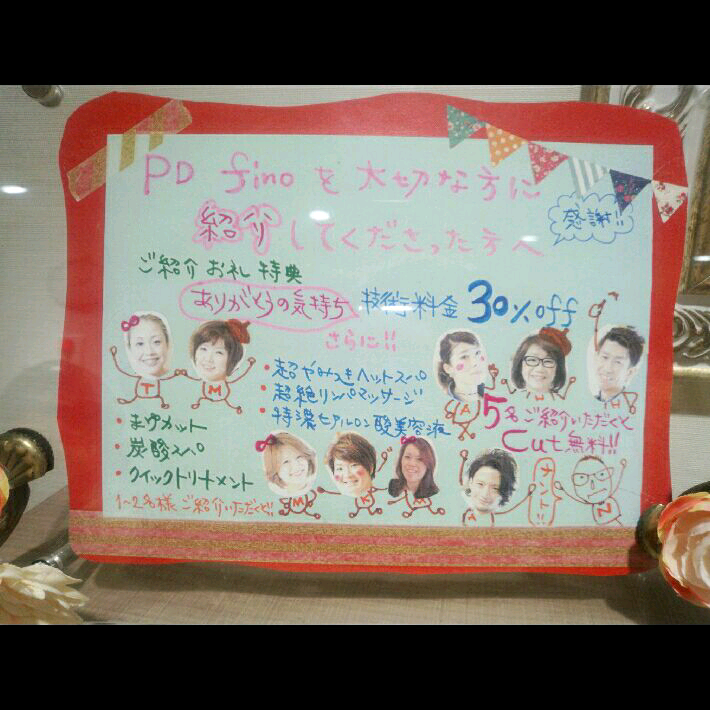 PD fino を大切な方に
紹介してくださった方へ
感謝!!
ご紹介 お礼 特典
ありがとうの気持ち 技術料金 30%off
さらに!!
・超やみつきヘッドスパ
・超絶リンパマッサージ
・特濃ヒアルロン酸美容液
・まゆカット
・炭酸スパ
・クイックトリートメント
1~2名様ご紹介いただくと!!
5名ご紹介いただくと
Cut無料!!
T
M
A
N
H
M
K
M
A
ナント!!
N